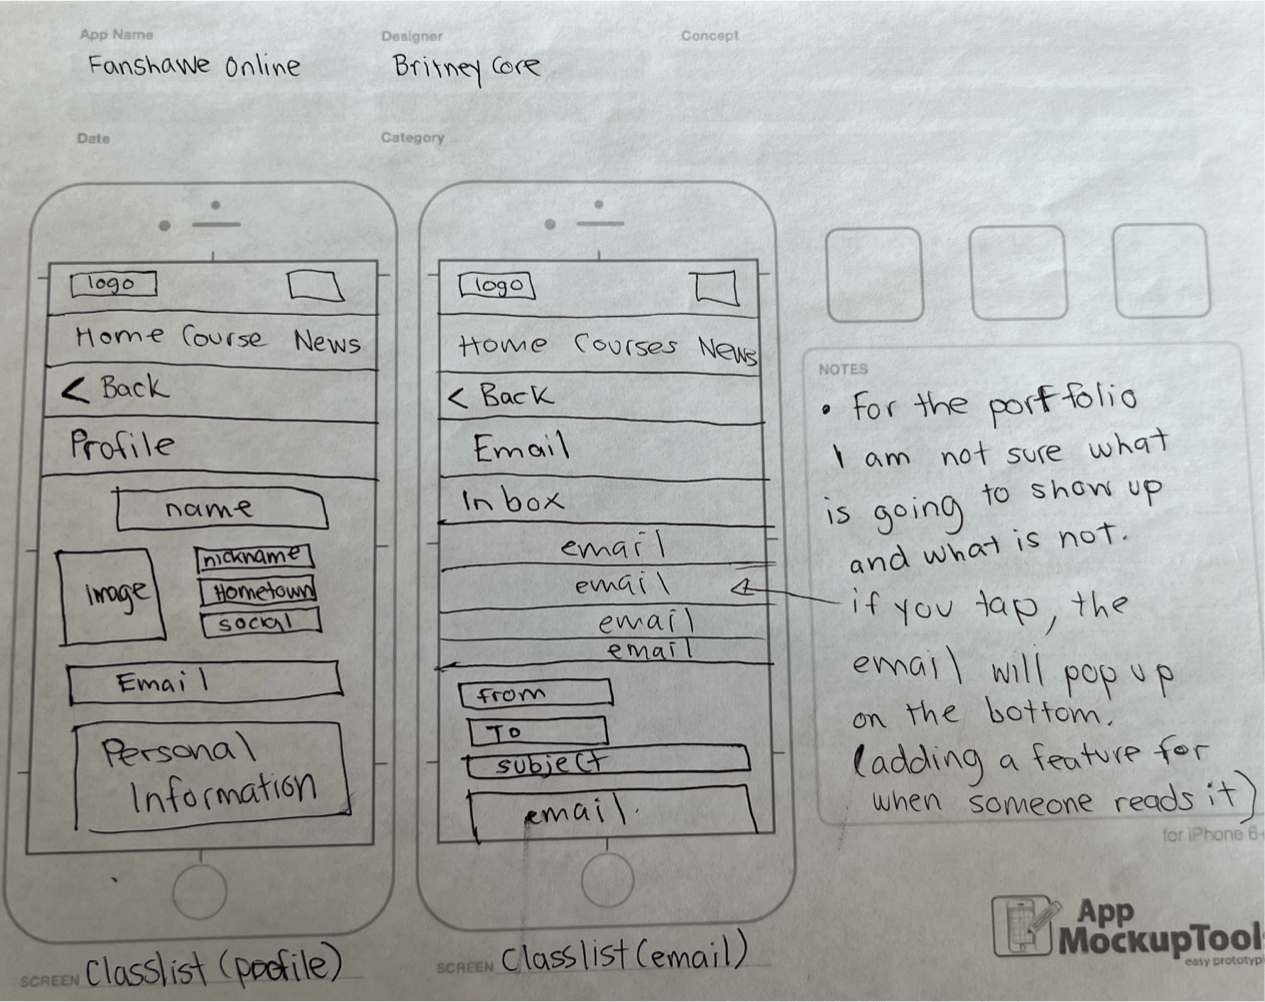 App Name
Fanshawe Online
Designer
Britney Core
Concept
Date
Category
logo
Home Course News
< Back
Profile
name
image
nickname
Hometown
social
Email
Personal
Information
SCREEN Classlist (profile)
logo
Home Courses News
< Back
Email
Inbox
email
email
email
email
from
To
subject
email.
SCREEN Classlist (email)
NOTES
• For the portfolio
I am not sure what
is going to show up
and what is not.
if you tap, the
email will pop up
on the bottom.
(adding a feature for
when someone reads it)
for iPhone 6
App
MockupTool
easy prototyp